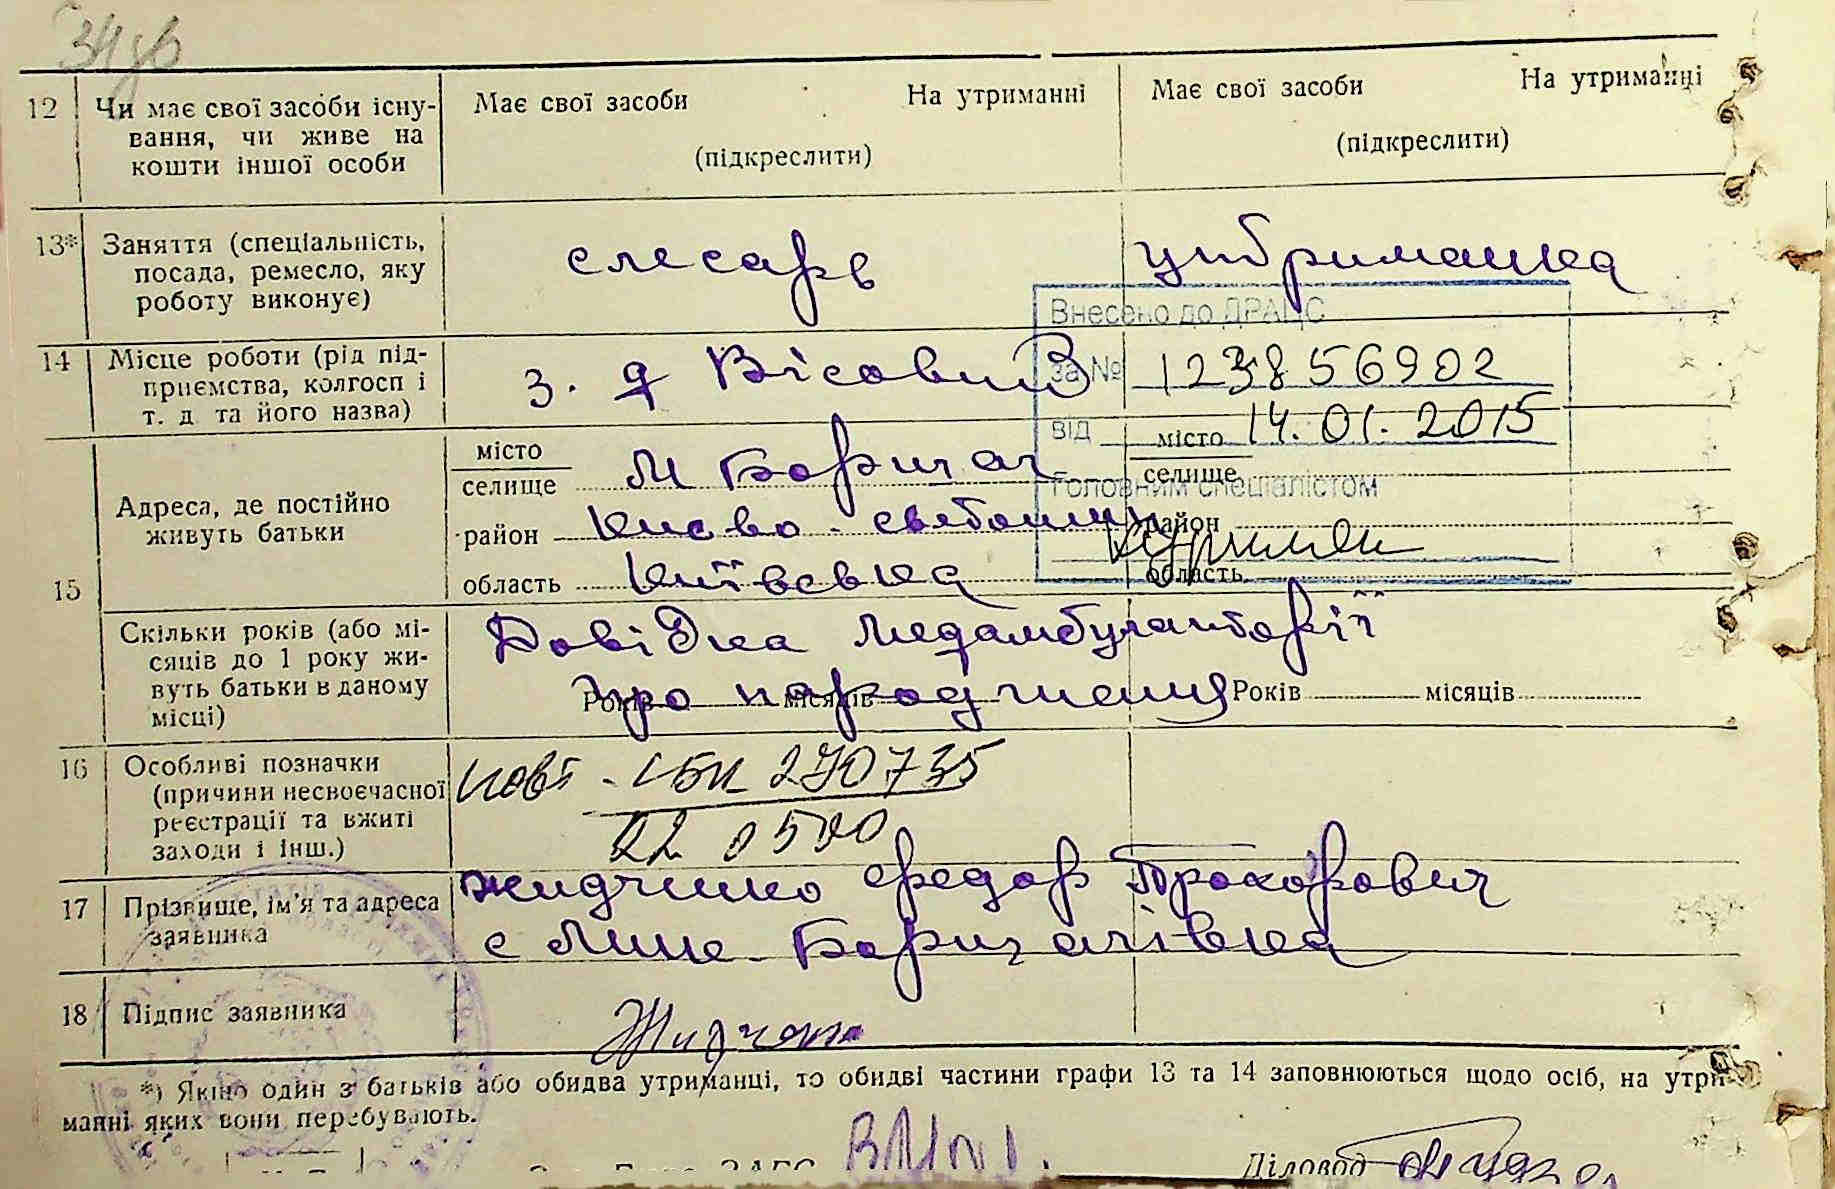 12 Чи має свої засоби існу-
вання, чи живе на
кошти іншої особи
Має свої засоби На утриманні
(підкреслити)
Має свої засоби На утриманці
(підкреслити)
13* Заняття (спеціальність,
посада, ремесло, яку
роботу виконує)
слесарь
цибриманка
Внесено до ДРАЦС
за № 123856902
від 14.01.2015
Головним спеціалістом
14 Місце роботи (рід під-
приємства, колгосп і
т. д. та його назва)
з. д Вісовий
15 Адреса, де постійно
живуть батьки
місто
селище М Борщаг
район Києво-святошин
область Київська
місто
селище
район
область
Скільки років (або мі-
сяців до 1 року жи-
вуть батьки в даному
місці)
Довідка медамбулаторії
про народження
Років місяців
Років місяців
16 Особливі позначки
(причини несвоєчасної
реєстрації та вжиті
заходи і інш.)
повт - ІБК 270735
22 0500
17 Прізвище, ім'я та адреса
заявника
Жидченко Федор Прохорович
с Мик. Борщагівка
18 Підпис заявника
*) Якщо один з батьків або обидва утриманці, то обидві частини графи 13 та 14 заповнюються щодо осіб, на утри-
манні яких вони перебувають.
ЗАГС
Діловод